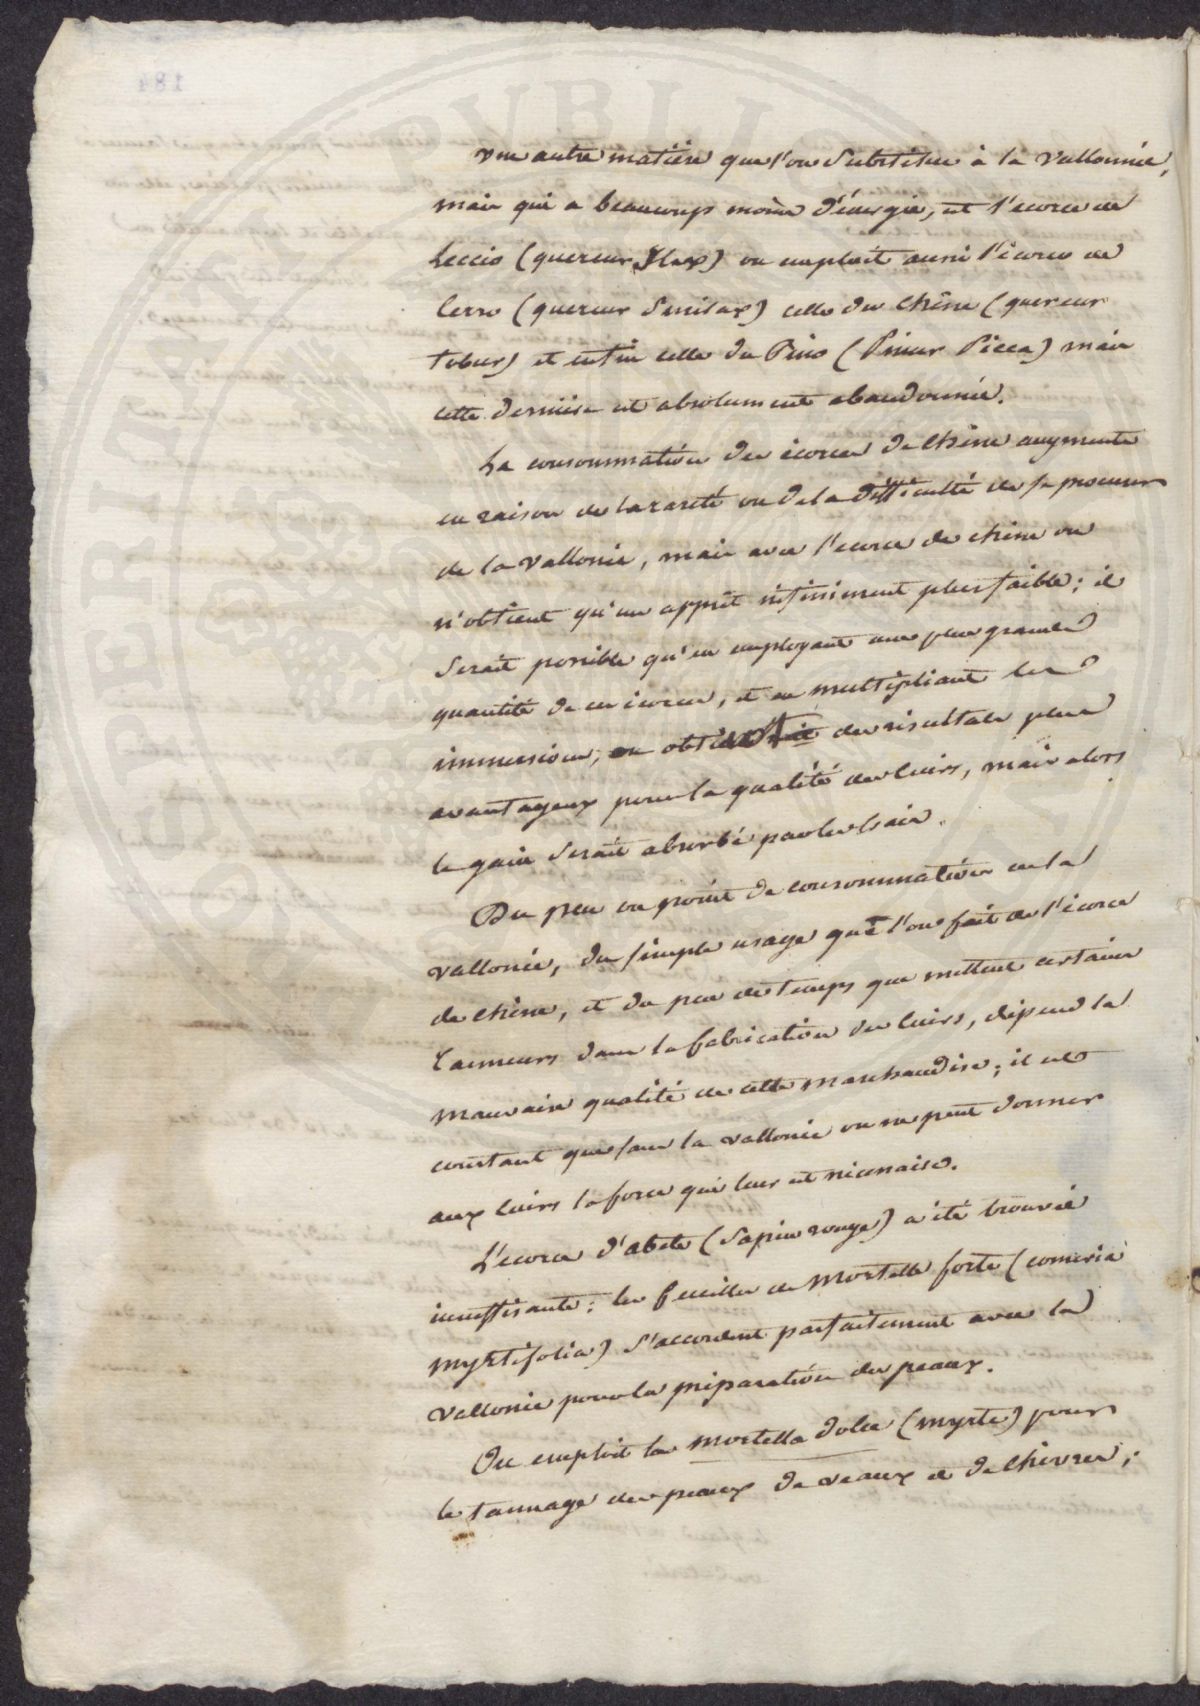 une autre matière que l'on substitue à la vallonnée,
mais qui a beaucoup moins d'énergie, est l'ecorce de
Leccio (quercus Ilex) on emploit aussi l'écorce de
Cerro (quercus Smilax) celle du Chêne (quercus
robur) et enfin celle du Pino (Pinus Picea) mais
cette dernière est absolument abandonnée.
La consommation des écorces de Chêne augmente
en raison de la rareté ou de la difficulté de se procurer
de la Vallonie, mais avec l'ecorce de chêne on
n'obtient qu'un apprêt infiniment plus faible; il
serait possible qu'en employant une plus grande
quantité de ces écorces, et en multipliant les
immersions, on obtint des résultats plus
avantageux pour la qualité des Cuirs, mais alors
le gain serait absorbé par les frais.
Du peu ou point de consommation de la
vallonie, du simple usage que l'on fait de l'écorce
de Chêne, et du peu de temps que mettent certains
Tanneurs dans la fabrication des Cuirs, dépend la
mauvaise qualité de cette marchandise; il est
constant que sans la vallonie on ne peut donner
aux Cuirs la force qui leur est nécessaire.
L'ecorce d'abete (Sapin rouge) a été trouvée
insuffisante: les feuilles de Mortelle forte (
myrtifolia) s'accordent parfaitement avec la
Vallonie pour la préparation des peaux.
On emploit la mortella dolce (myrte) pour
le tannage des peaux de veaux et de Chèvres;